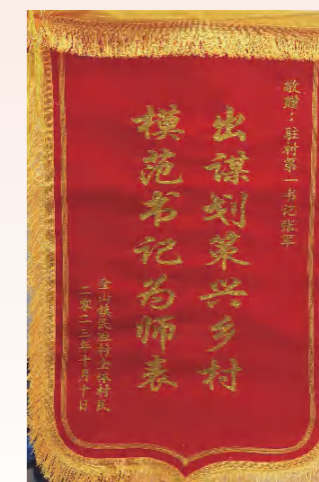 敬赠：驻村第一书记张军
出谋划策兴乡村
模范书记为师表
金山镇民胜村全体村民
二零二三年十月十日